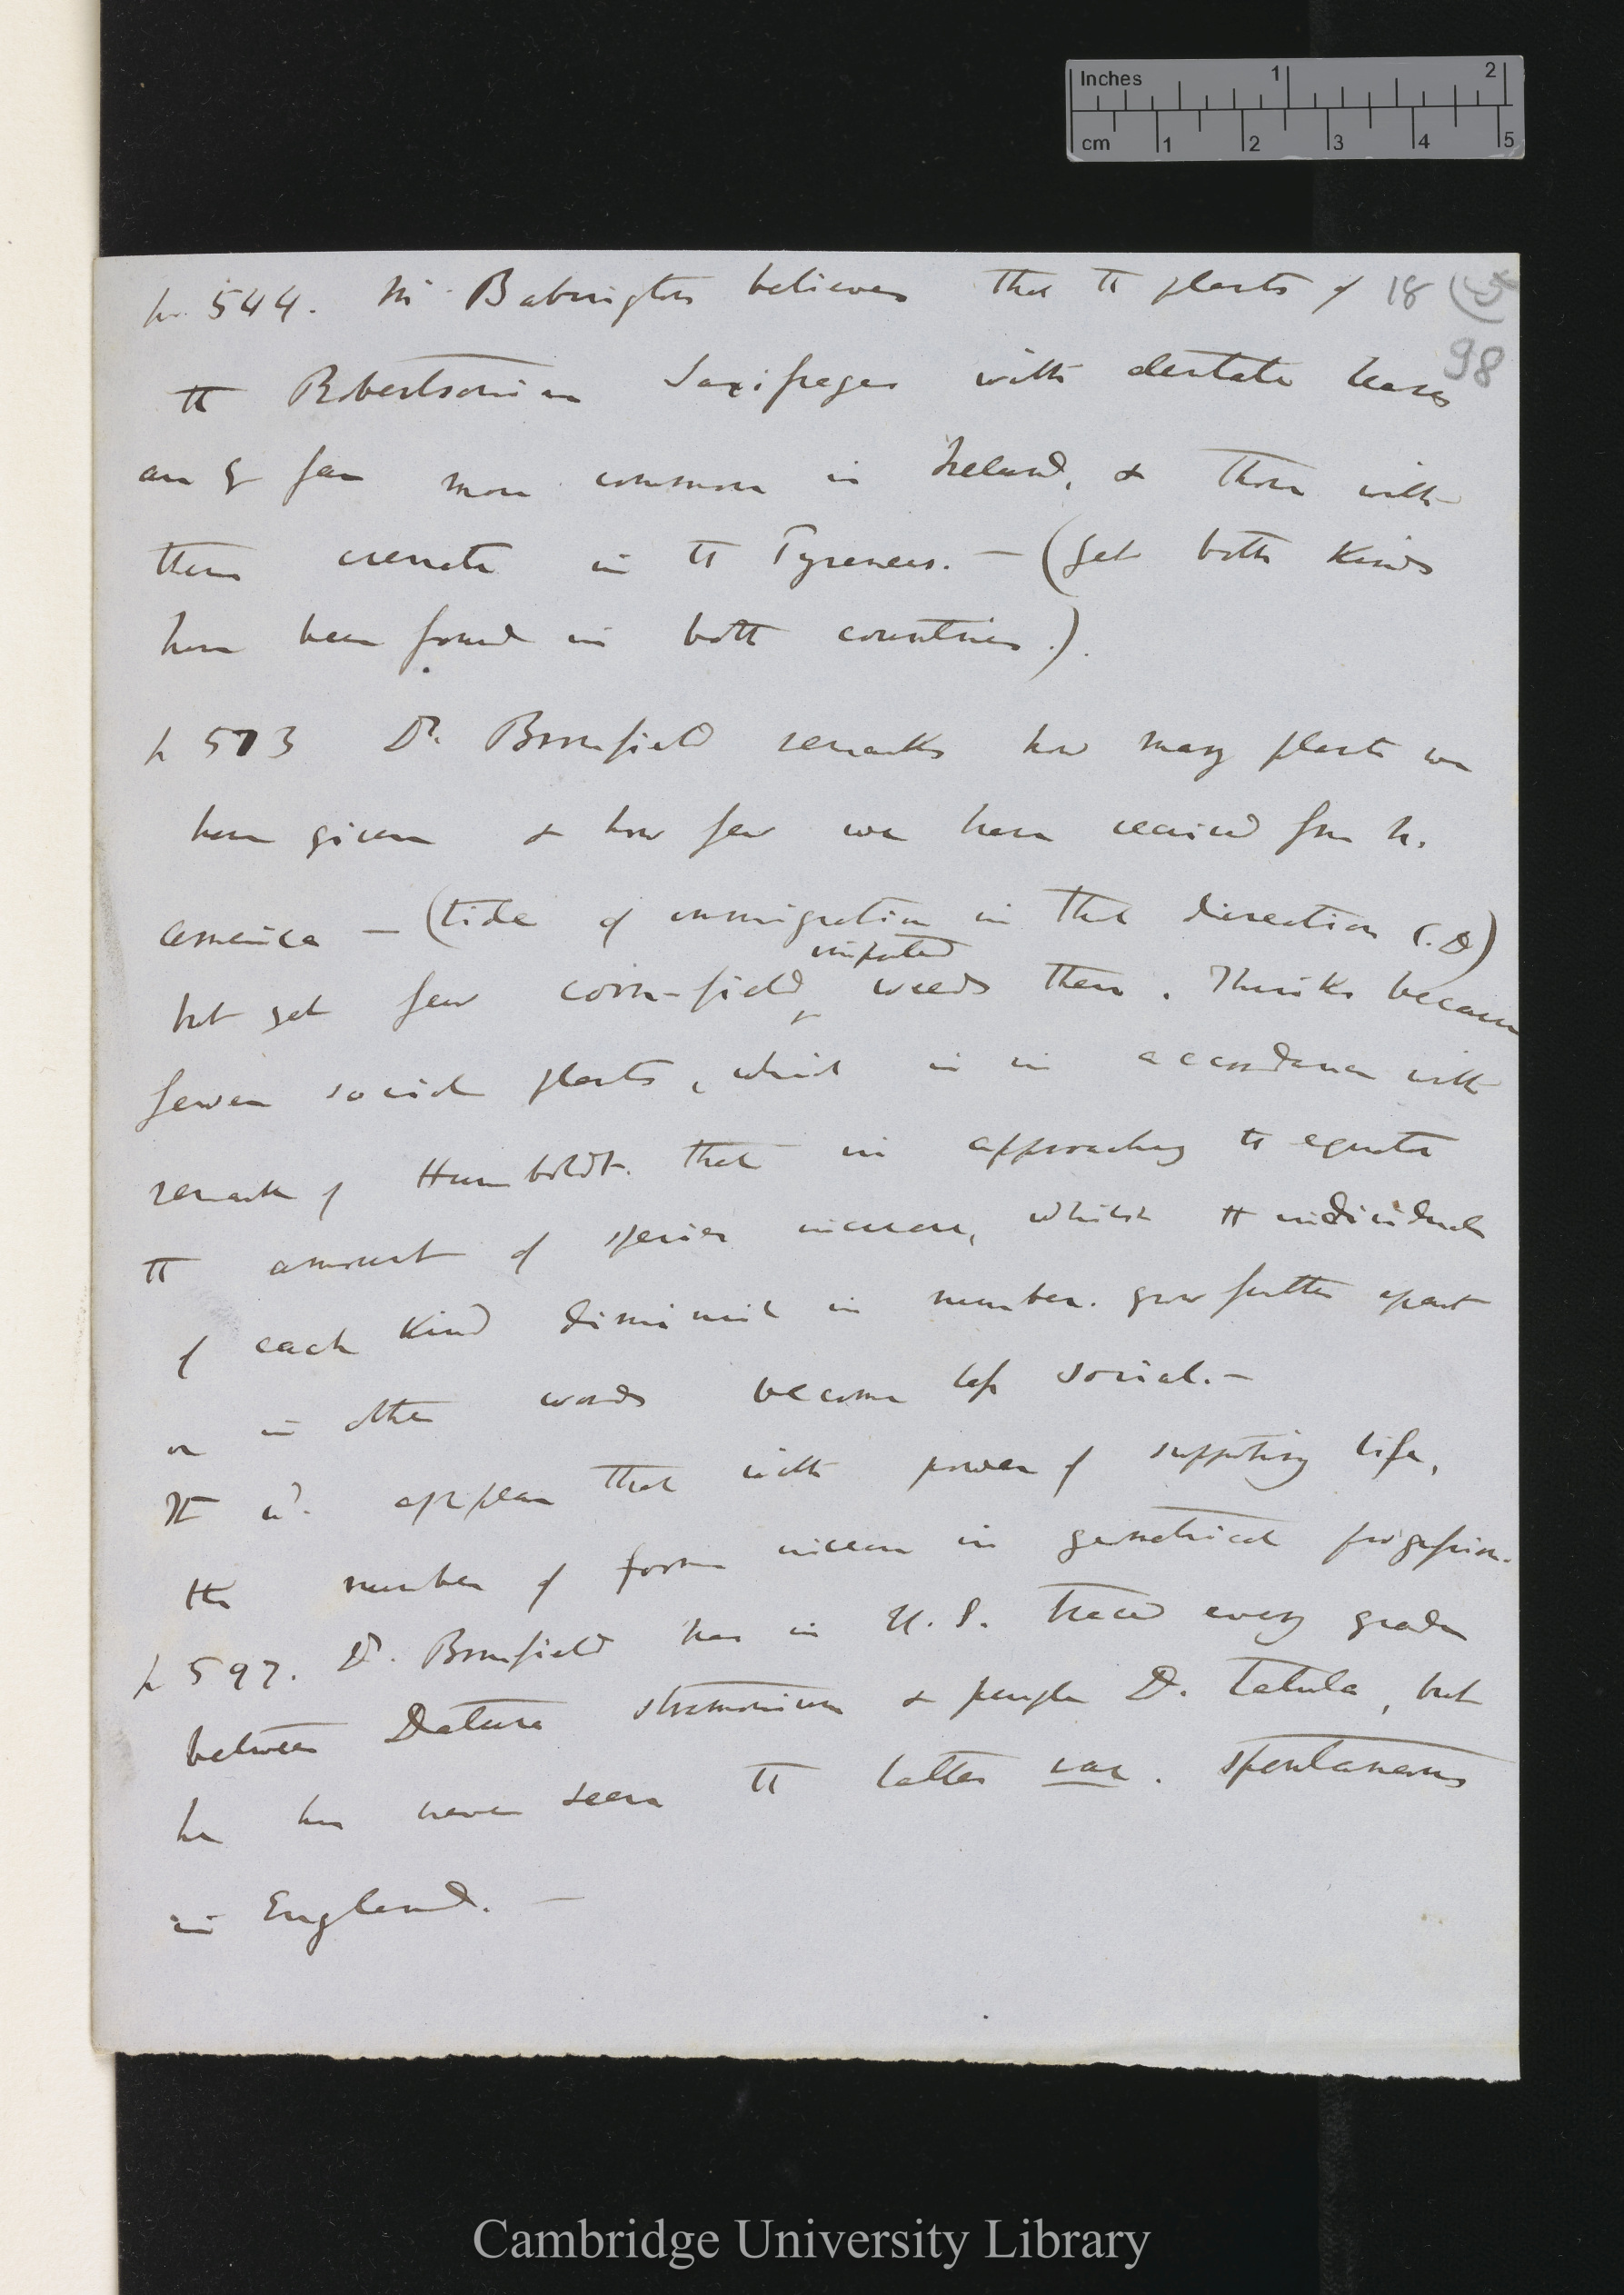 Inches 1 2
cm 1 2 3 4 5
p. 544. Mr Babington believes that the plants of 18
98
the Robertsonian Saxifrages with dentate leaves
are far more common in Ireland, & those with
them crenate in the Pyrenees. — (yet both kinds
have been found in both countries.).
p 573 Dr. Bromfield remarks how many plants we
have given & how few we have received from N.
America — (tide of immigration in that direction C.D)
imported
but yet few corn-field weeds there. Thinks because
fewer social plants, which is in accordance with
remark of Humboldt. that in approaching the equator
the amount of species increase, whilst the individuals
of each kind diminish in number. grow further apart
or in other words become less social. —
It wd. appear that with power of supporting life,
the number of forms increase in geometrical progression.
p 597. Dr. Bromfield has in U.S. traced every grade
between Datura stramonium & purple D. tatula, but
he has never seen the latter var. spontaneous
in England. —
Cambridge University Library